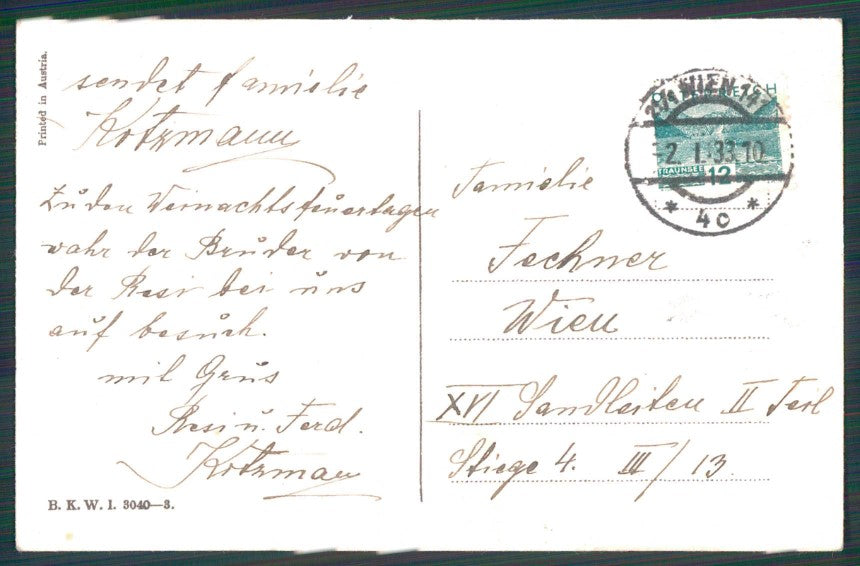 Printed in Austria.
sendet famielie
Kotzmann
Zu den Weinachtsfeuertagen
wahr der Bruder von
der Resi bei uns
auf besuch.
mit Grus
Resi u. Ferd.
Kotzman
B. K. W. I. 3040—3.
WIEN 141
2. I. 33. 10
* 4c *
TRAUNSEE 12
Famielie
Fechner
Wien
XVI Sandleiten II Teil
Stiege 4. III/13.